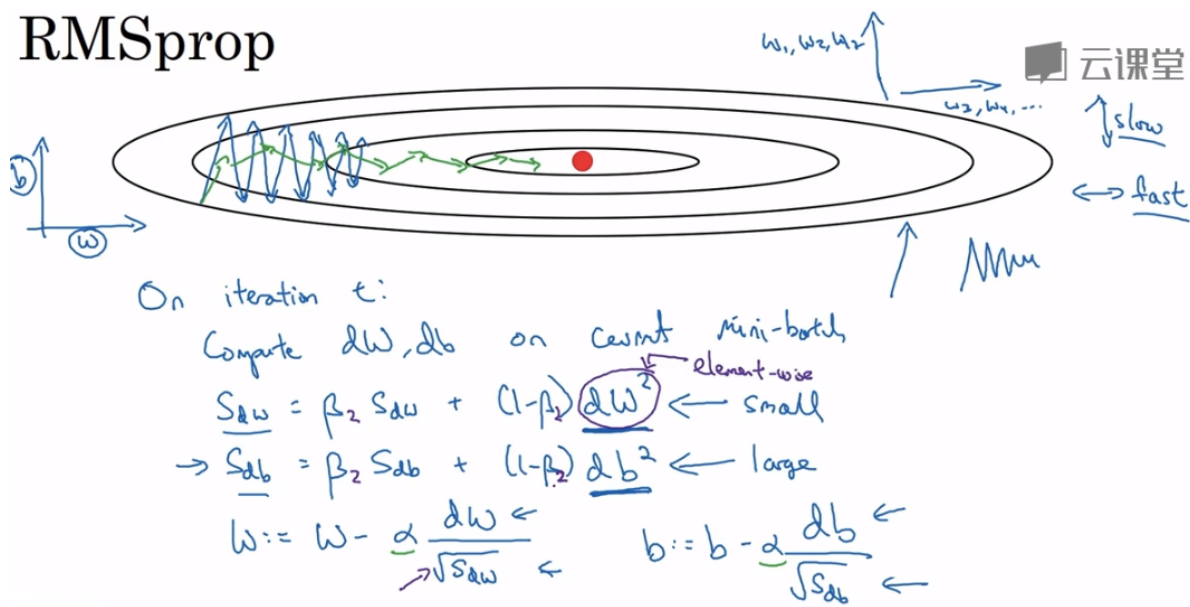 RMSprop
w₁, w₂, w₂
云课堂
w₃, w₄, ...
slow
b
fast
w
On iteration t:
Compute dW, db on current mini-batch
element-wise
S_dw = β₂ S_dw + (1-β₂) dW² ← small
→ S_db = β₂ S_db + (1-β₂) db² ← large
W := W - α dW / √S_dw ←
b := b - α db / √S_db ←